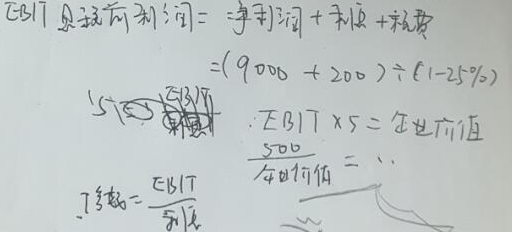 EBIT 息税前利润 = 净利润 + 利息 + 税费
= (9000 + 200) ÷ (1-25%)
EBIT × 5 = 企业价值
500 / 企业价值 = ...
= EBIT / 利息